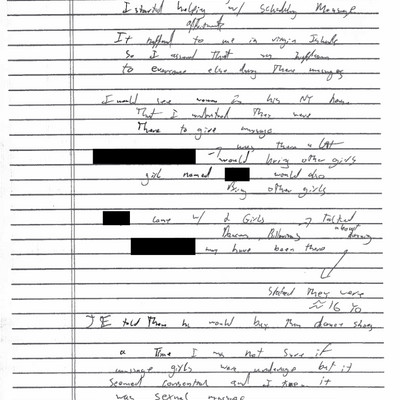 I started helping w/ Scheduling Massage
appointments
It offered to me in virgin Islands
So I assumed that was
to everyone else doing these massages
I would see women in his NY home
That I understood they were
There to give massage
→ was there a lot
would bring other girls
girl named would also
bring other girls
come w/ 2 Girls → Talked
about
dancing
may have been there
stated they were
≈ 16 yo
JE told them he would buy them dance shoes
a Time I was not sure if
massage girls was underage but it
seemed consensual and I it
was sexual massage